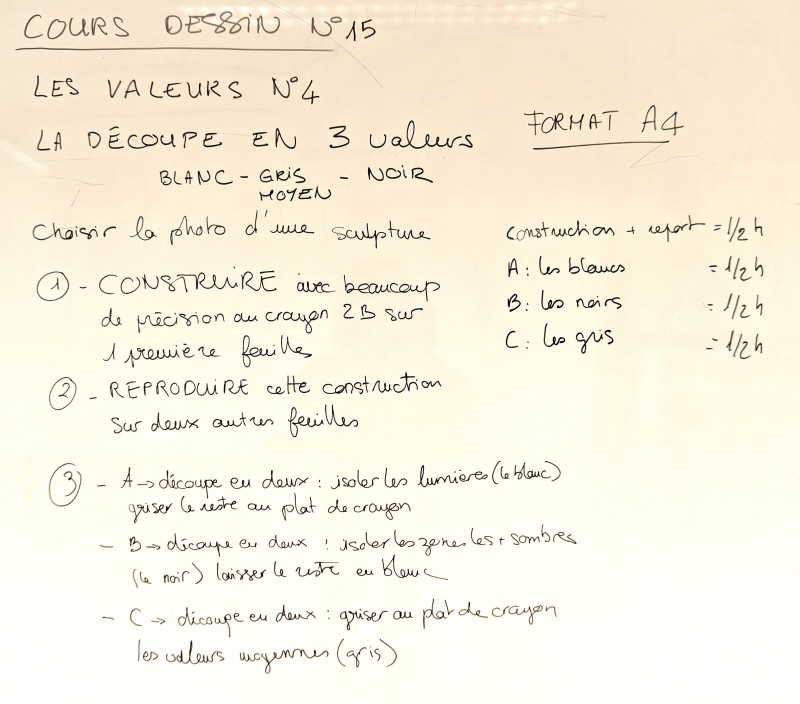 COURS DESSIN N°15
LES VALEURS N°4
LA DÉCOUPE EN 3 valeurs
BLANC - GRIS - NOIR
MOYEN
FORMAT A4
Choisir la photo d'une sculpture
① - CONSTRUIRE avec beaucoup
de précision au crayon 2B sur
1 première feuilles
② - REPRODUIRE cette construction
sur deux autres feuilles
③ - A → découpe en deux : isoler les lumières (le blanc)
griser le reste au plat de crayon
- B → découpe en deux : isoler les zones les + sombres
(le noir) laisser le reste en blanc
- C → découpe en deux : griser au plat de crayon
les valeurs moyennes (gris)
construction + report = 1/2 h
A : les blancs = 1/2 h
B : les noirs = 1/2 h
C : les gris = 1/2 h